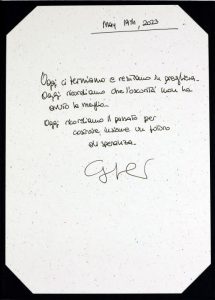 May 19th, 2023
Oggi ci fermiamo e restiamo in preghiera.
Oggi ricordiamo che l'oscurità non ha
avuto la meglio.
Oggi ricordiamo il passato per
costruire insieme un futuro
di speranza.